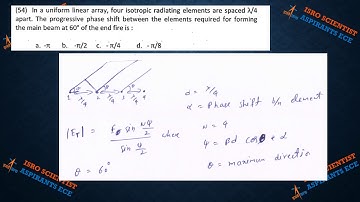 (54) In a uniform linear array, four isotropic radiating elements are spaced λ/4
apart. The progressive phase shift between the elements required for forming
the main beam at 60° of the end fire is :
a. -π b. -π/2 c. -π/4 d. -π/8
d = λ/4
α = Phase shift b/n element
N = 4
|E_T| = E₀ sin Nψ/2 / sin ψ/2 where
ψ = βd cosθ + α
θ = maximum direction
θ = 60°
ISRO SCIENTIST
ASPIRANTS ECE
ISRO SCIENTIST
ASPIRANTS ECE
ISRO SCIENTIST
ASPIRANTS ECE
ISRO SCIENTIST
ASPIRANTS ECE